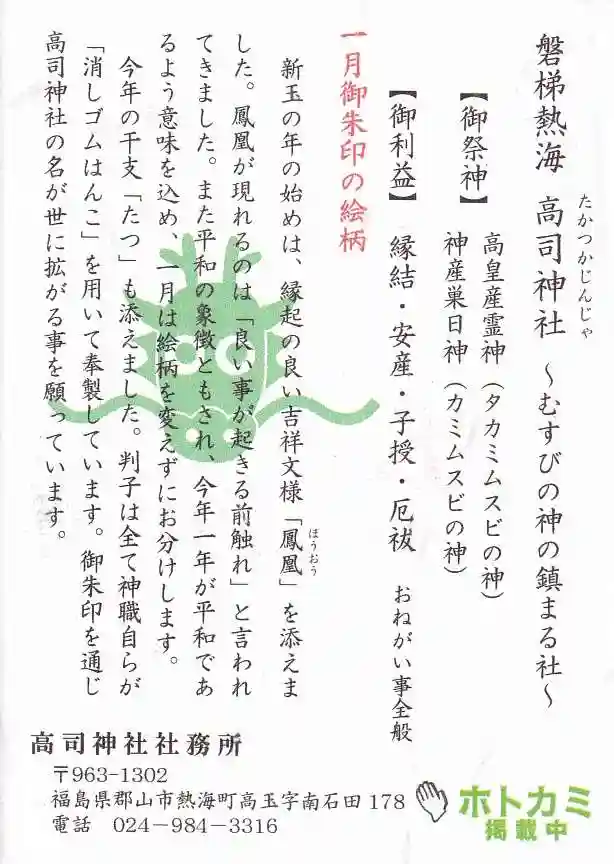 磐梯熱海 高司神社 ～むすびの神の鎮まる社～
たかつかじんじゃ
【御祭神】 高皇産霊神（タカミムスビの神）
神産巣日神（カミムスビの神）
【御利益】 縁結・安産・子授・厄祓 おねがい事全般
一月御朱印の絵柄
新玉の年の始めは、縁起の良い吉祥文様「鳳凰」を添えま
ほうおう
した。鳳凰が現れるのは「良い事が起きる前触れ」と言われ
てきました。また平和の象徴ともされ、今年一年が平和であ
るよう意味を込め、一月は絵柄を変えずにお分けします。
今年の干支「たつ」も添えました。判子は全て神職自らが
「消しゴムはんこ」を用いて奉製しています。御朱印を通じ
高司神社の名が世に拡がる事を願っています。
高司神社社務所
〒963-1302
福島県郡山市熱海町高玉字南石田178
電話 024-984-3316
ホトカミ
掲載中